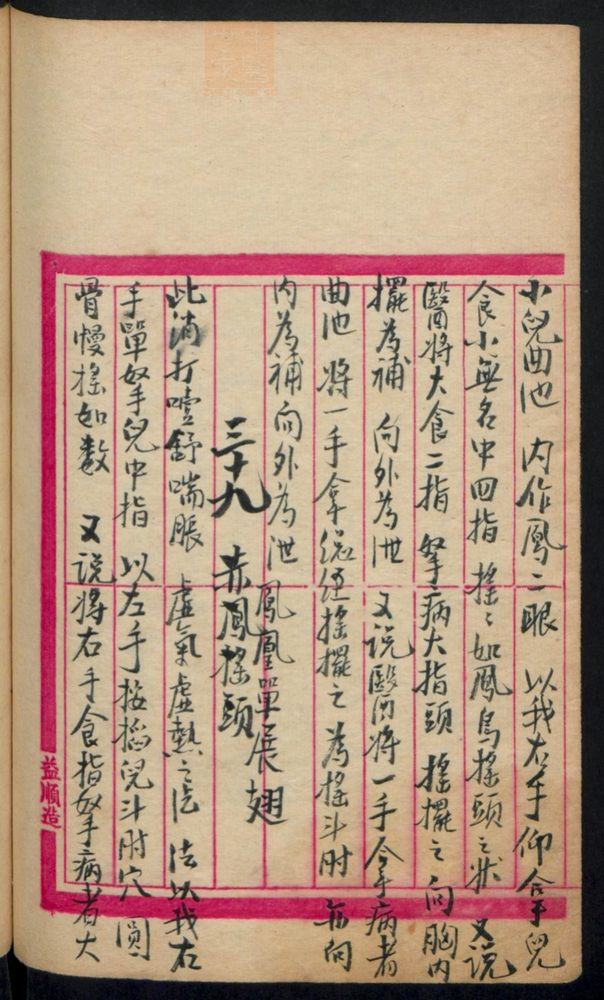 小兒曲池 内作鳳二眼 以我右手仰拿兒
食小無名中四指 搖〻如鳳鳥搖頭之狀 又說
醫將大食二指 拏病大指頭 搖擺之向胸内
擺為補 向外為泄 又說醫將一手拿病者
曲池 將一手拿總經搖擺之 為搖斗肘 向
内為補向外為泄
三十九 赤鳳搖頭
鳳凰單展翅
此消打噎舒喘脹 虛氣虛熱之法 法以我右
手單拏兒中指 以左手按搯兒斗肘穴 圓
骨慢搖如數 又說將右手食指拏病者大
益順造